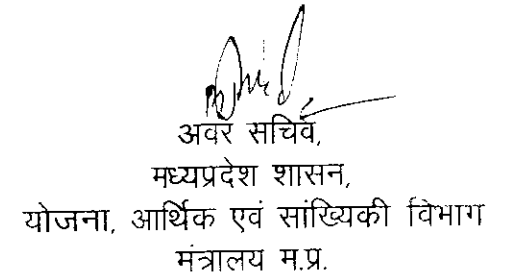 अवर सचिव,
मध्यप्रदेश शासन,
योजना, आर्थिक एवं सांख्यिकी विभाग
मंत्रालय म.प्र.